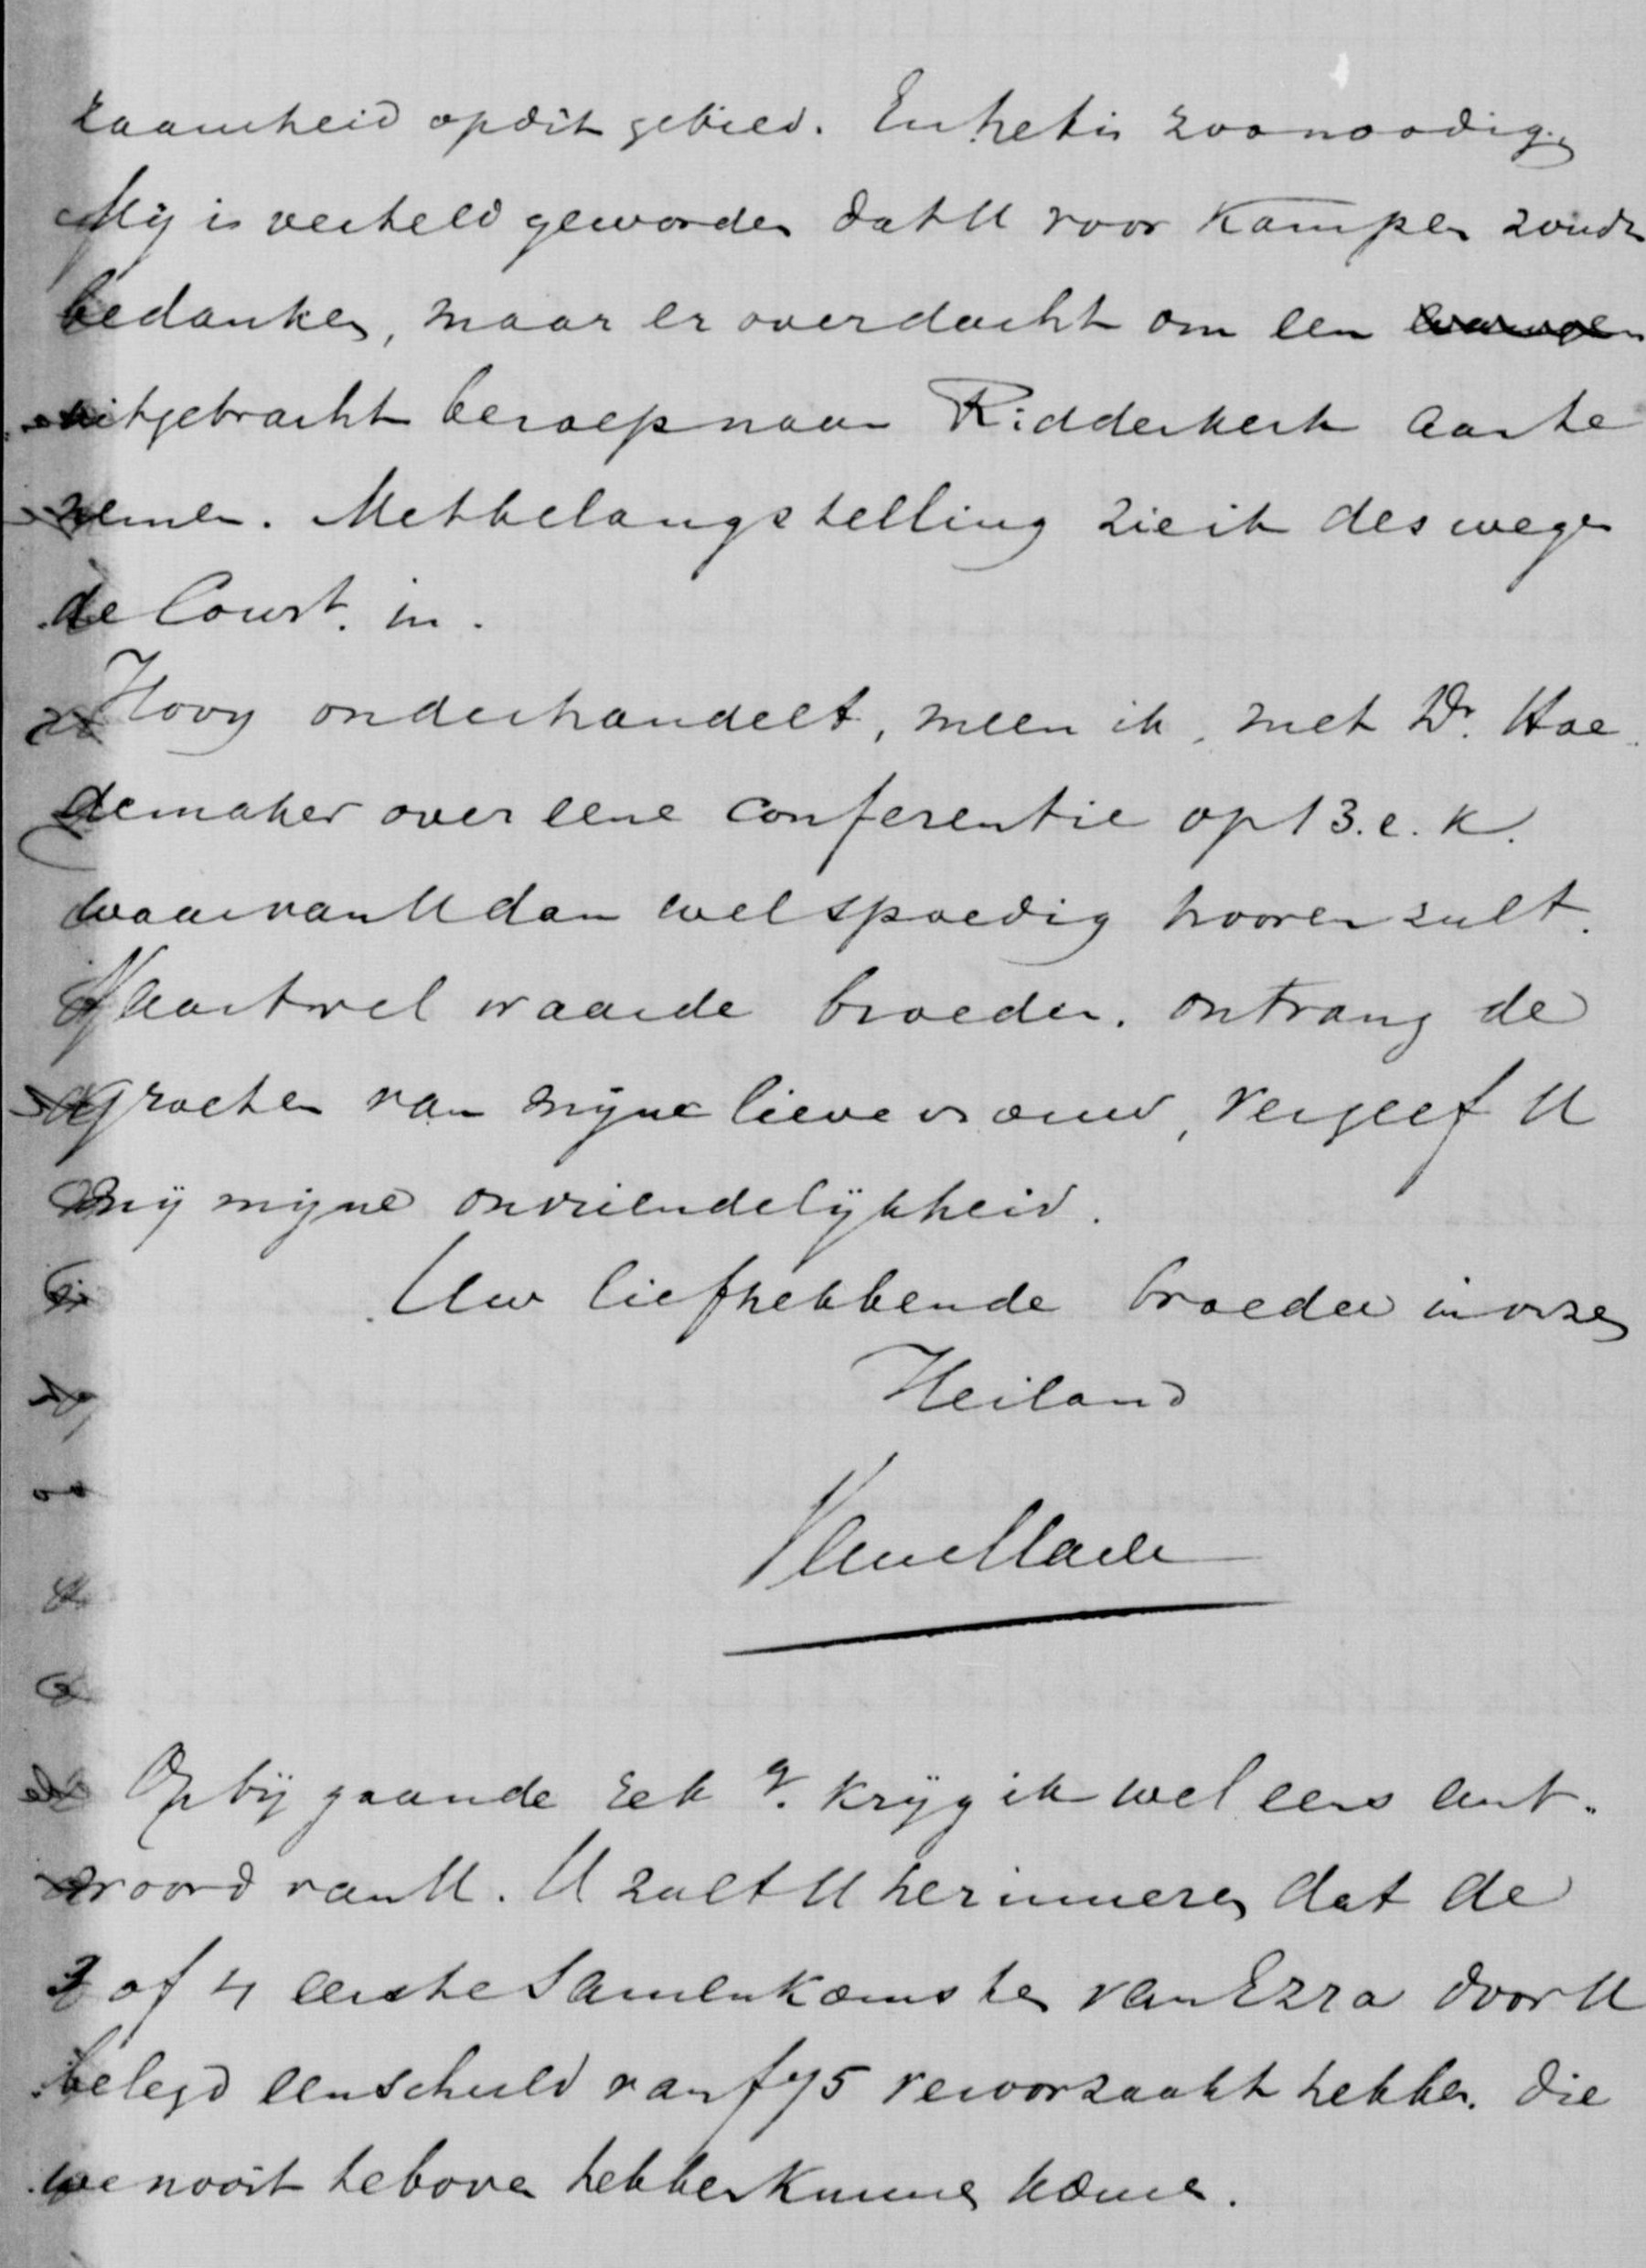 zaamheid op dit gebied. En het is zoo noodig.
Mij is verteld geworden dat U voor Kampen zoudt
bedanken, maar er over dacht om een
uitgebracht beroep naar Ridderkerk aan te
nemen. Met belangstelling zie ik deswegen
de Court. in.
Hovy onderhandelt, meen ik, met Dr. Hoe
demaker over eene conferentie op 13. e. k.
waarvan U dan wel spoedig hooren zult.
Vaartwel waarde broeder. ontvang de
groeten van mijne lieve vrouw, vergeef U
mij mijne onvriendelijkheid.
Uw liefhebbende broeder in onzen
Heiland
Op bijgaande krijg ik wel eens ant-
woord van U. U zult U herinneren dat de
3 of 4 eerste Samenkomsten van Ezra door U
belegd een schuld van f75 veroorzaakt hebben. die
we nooit te boven hebben kunnen komen.